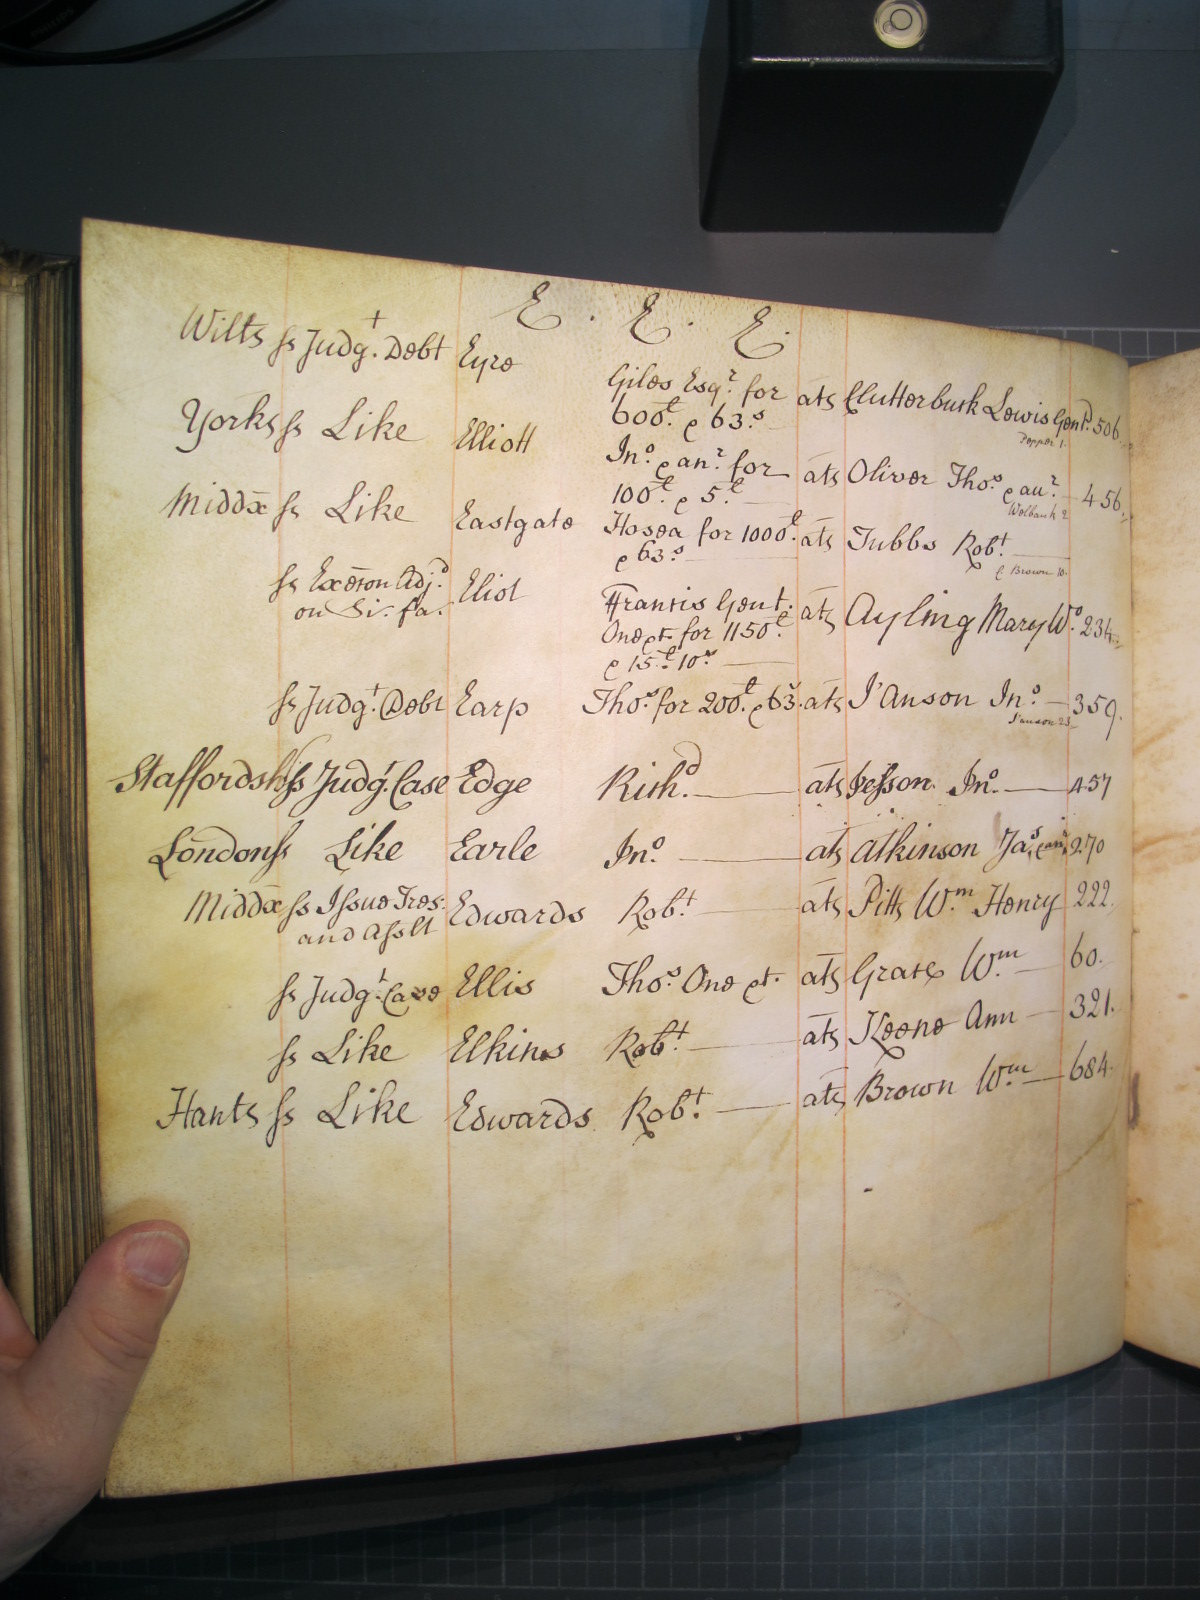 E. E. E.
Wilts ss Judgt. Debt Eyre Giles Esqr. for ats Clutterbuck Lewis Gent. 506.
600£. & 63s. Pepper 1.
Yorks ss Like Elliott Jno. & anr. for ats Oliver Thos. & anr. 456.
100£. & 5£. Welbank 2
Middx ss Like Eastgate Hosea for 1000£. ats Tubbs Robt.
& 63s. C Brown 10.
ss Execron Adjd. Eliot Francis Gent. ats Ayling Mary Wo. 234.
on Si. fa. One &c. for 1150£.
& 15£. 10s.
ss Judgt. Debt Earp Thos. for 200£. & 63s. ats I'Anson Jno. 359.
I'anson 23
Staffordsh ss Judgt. Case Edge Richd. ats Jesson Jno. 457
London ss Like Earle Jno. ats Atkinson Jas. & anr. 270
Middx ss Issue Tres. Edwards Robt. ats Pitts Wm. Henry 222.
and Asslt
ss Judgt. Case Ellis Thos. One &c. ats Graces Wm. 60.
ss Like Elkins Robt. ats Keene Ann 321.
Hants ss Like Edwards Robt. ats Brown Wm. 684.
PHILIPS